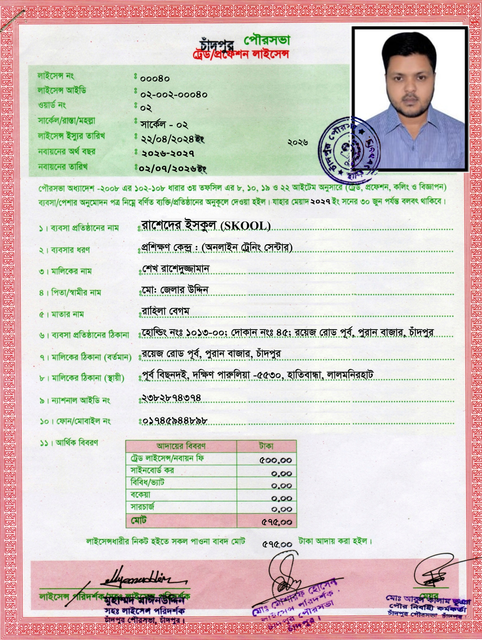 চাঁদপুর পৌরসভা
ট্রেড/প্রফেশন লাইসেন্স
লাইসেন্স নং : ০০০৪০
লাইসেন্স আইডি : ০২-০০২-০০০৪০
ওয়ার্ড নং : ০২
সার্কেল/রাস্তা/মহল্লা : সার্কেল - ০২
লাইসেন্স ইস্যুর তারিখ : ২২/০৪/২০২৪ইং
২০২৬
নবায়নের অর্থ বছর : ২০২৬-২০২৭
নবায়নের তারিখ : ০২/০৭/২০২৬ইং
পৌরসভা অধ্যাদেশ -২০০৮ এর ১০২-১০৮ ধারার ৩য় তফসিল এর ৮, ১০, ১৯ ও ২২ আইটেম অনুসারে (ট্রেড, প্রফেশন, কলিং ও বিজ্ঞাপন)
ব্যবসা/পেশার অনুমোদন পত্র নিম্নে বর্ণিত ব্যক্তি/প্রতিষ্ঠানের অনুকূলে দেওয়া হইল। যাহার মেয়াদ ২০২৭ ইং সনের ৩০ জুন পর্যন্ত বলবৎ থাকিবে।
১। ব্যবসা প্রতিষ্ঠানের নাম : রাশেদের ইসকুল (SKOOL)
২। ব্যবসার ধরণ : প্রশিক্ষণ কেন্দ্র : (অনলাইন ট্রেনিং সেন্টার)
৩। মালিকের নাম : শেখ রাশেদুজ্জামান
৪। পিতা/স্বামীর নাম : মো: জেলার উদ্দিন
৫। মাতার নাম : রাহিলা বেগম
৬। ব্যবসা প্রতিষ্ঠানের ঠিকানা : হোল্ডিং নংঃ ১০১৩-০০; দোকান নংঃ ৪৫; রয়েজ রোড পূর্ব, পুরান বাজার, চাঁদপুর
৭। মালিকের ঠিকানা (বর্তমান) : রয়েজ রোড পূর্ব, পুরান বাজার, চাঁদপুর
৮। মালিকের ঠিকানা (স্থায়ী) : পূর্ব বিছনদই, দক্ষিণ পারুলিয়া -৫৫৩০, হাতিবান্ধা, লালমনিরহাট
৯। ন্যাশনাল আইডি নং : ২৩৮২৮৭৪৩৭৪
১০। ফোন/মোবাইল নং : ০১৭৪৫৯৪৪৮৯৮
১১। আর্থিক বিবরণ
আদায়ের বিবরণ টাকা
ট্রেড লাইসেন্স/নবায়ন ফি ৫০০.০০
সাইনবোর্ড কর ০.০০
বিবিধ/ভ্যাট ০.০০
বকেয়া ০.০০
সারচার্জ ০.০০
মোট ৫৭৫.০০
লাইসেন্সধারীর নিকট হইতে সকল পাওনা বাবদ মোট ৫৭৫.০০ টাকা আদায় করা হইল।
মুহাম্মদ মাঈনউদ্দিন
সহঃ লাইসেন্স পরিদর্শক
চাঁদপুর পৌরসভা, চাঁদপুর
মোঃ মোশার্রফ হোসেন
লাইসেন্স পরিদর্শক
চাঁদপুর পৌরসভা
চাঁদপুর।
মোঃ আবুল কালাম ভূঞা
পৌর নির্বাহী কর্মকর্তা
চাঁদপুর পৌরসভা, চাঁদপুর।